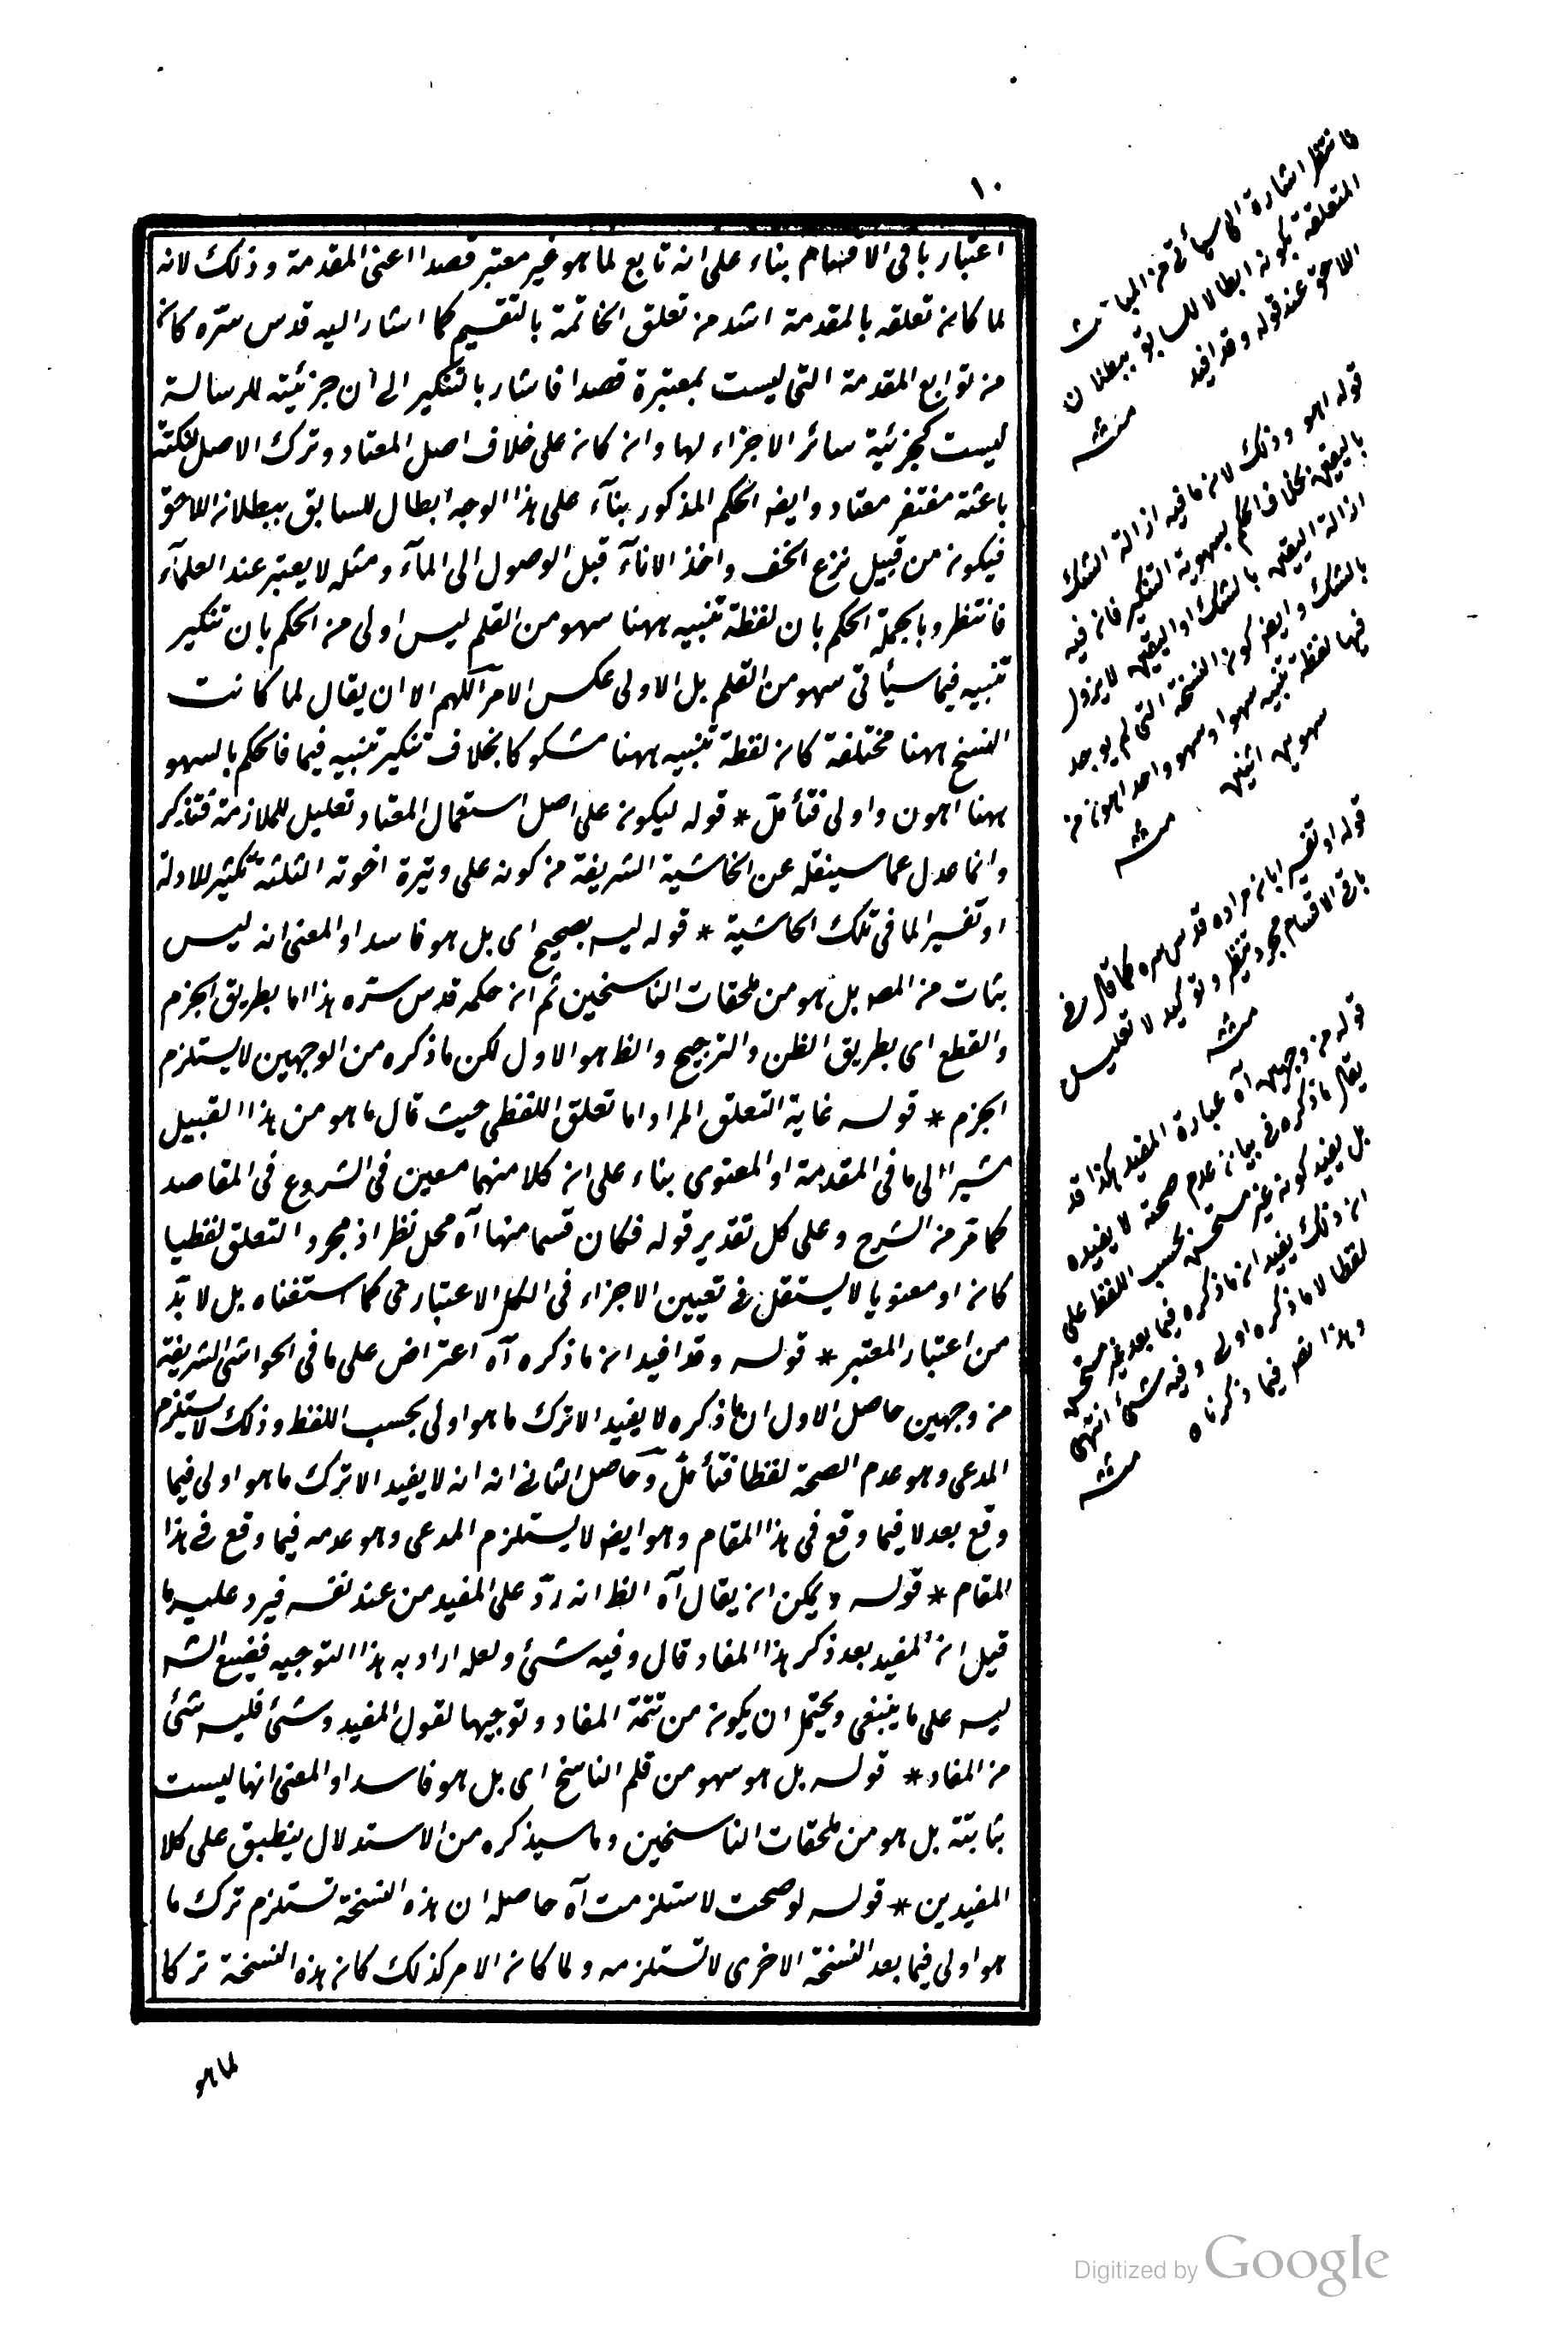 ١٠
اعتبار باقى الاقسام بناء على انه تابع لما هو غير معتبر قصدا اعنى المقدمة وذلك لانه
لما كان تعلقه بالمقدمة اشد من تعلق الخاتمة بالتقسيم كما اشار اليه قدس سره كان
من توابع المقدمة التى ليست بمعتبرة قصدا فاشار بالتنكير الى ان جزئيته للرسالة
ليست كجزئية سائر الاجزاء لها وان كان على خلاف اصل المعتاد وترك الاصل لنكتة
باعثة مغتفر معتاد وايضا الحكم المذكور بنآء على هذا الوجه ابطال للسابق ببطلان اللاحق
فيكون من قبيل نزع الخف واخذ الاناء قبل الوصول الى المآء ومثله لا يعتبر عند العلمآء
فانتظر وبالجملة الحكم بان لفظة تنبيه ههنا سهو من القلم ليس اولى من الحكم بان تنكير
تنبيه فيما سيأتى سهو من القلم بل الاولى عكس الامر آللهم الا ان يقال لما كانت
النسخ ههنا مختلفة كان لفظة تنبيه ههنا مشكوكا بخلاف تنكير تنبيه فيما فالحكم بالسهو
ههنا اهون واولى فتأمل * قوله ليكون على اصل استعمال المعتاد تعليل للملازمة فتذكر
وانما عدل عما سينقله عن الحاشية الشريفة من كونه على وتيرة اخوته الثلثة تكثير للادلة
او تفسير الما فى تلك الحاشية * قوله ليس بصحيح اى بل هو فاسد او المعنى انه ليس
بثات من المص بل هو من ملحقات الناسخين ثم ان حكمه قدس سره هذا اما بطريق الجزم
والقطع اى بطريق الظن والترجيح والظ هو الاول لكن ما ذكره من الوجهين لا يستلزم
الجزم * قوله غاية التعلق المراد اما تعلق اللفظى حيث قال ما هو من هذا القبيل
مشيرا الى ما فى المقدمة او المعنوى بناء على ان كلا منهما معين فى الشروع فى المقاصد
كما مر من الشرح وعلى كل تقدير قوله فكان قسما منها آه محل نظر اذ مجرد التعلق لفظيا
كان او معنويا لا يستقل فى تعيين الاجزاء فى الاعتبار كما بل لا بد
من اعتبار المعتبر * قوله وقد افيد ان ما ذكره آه اعتراض على ما فى الحواشى الشريفة
من وجهين حاصل الاول ان ما ذكره لا يفيد الا ترك ما هو اولى بحسب اللفظ وذلك لا يستلزم
المدعى وهو عدم الصحة لفظا فتأمل وحاصل الثانى انه لا يفيد الا ترك ما هو اولى فيما
وقع بعد لا فيما وقع فى هذا المقام وهو ايضا لا يستلزم المدعى وهو عدمه فيما وقع فى هذا
المقام * قوله ويمكن ان يقال آه الظ انه رد على المفيد من عند نفسه فيرد عليه ما
قيل ان المفيد بعد ذكر هذا المفاد قال وفيه شئ ولعله اراد به هذا التوجيه فصنيع الش
ليس على ما ينبغى ويحتمل ان يكون من تتمة المفاد وتوجيها لقول المفيد وشئ فليس شئ
من المفاد * قوله بل هو سهو من قلم الناسخ اى بل هو فاسد او المعنى انها ليست
بثابتة بل هو من ملحقات الناسخين وما سيذكره من الاستدلال ينطبق على كلا
المفيدين * قوله لو صحت لاستلزمت آه حاصله ان هذه النسخة تستلزم ترك ما
هو اولى فيما بعد النسخة الاخرى لا تستلزمه ولما كان الامر كذلك كان هذه النسخة تركا
لما هو
فانتظر اشارة الى ما سيأتى من المباحث
المتعلقة بكونه ابطالا للسابق ببطلان
اللاحق عند قوله وقد افيد
منه
قوله اهون وذلك لان ما فيه ازالة الشك
باليقين بخلاف الحكم بسهوية التنكير فان فيه
ازالة اليقين بالشك او اليقين لا يزول
بالشك وايضا كون النسخة التى لم يوجد
فيها لفظة تنبيه سهوا وسهو واحد اهون من
سهوين اثنين
منه
قوله او تفسير ا بان مراده قدس سره كما قال فى
باقى الاقسام مجرد تنظير وتوكيد لا تعليل
منه
قوله من وجهين آه عبارة المفيد هكذا قد
يقال ما ذكره فى بيان عدم صحته لا يفيده
بل يفيد كونه غير مستحسن بحسب اللفظ على
ان ذلك يفيد ان ما ذكره فيما بعد غير مستحسن
لفظا لا ما ذكره اولا وفيه شئ انتهى
وهذا نص فيما ذكرناه
منه
Digitized by Google